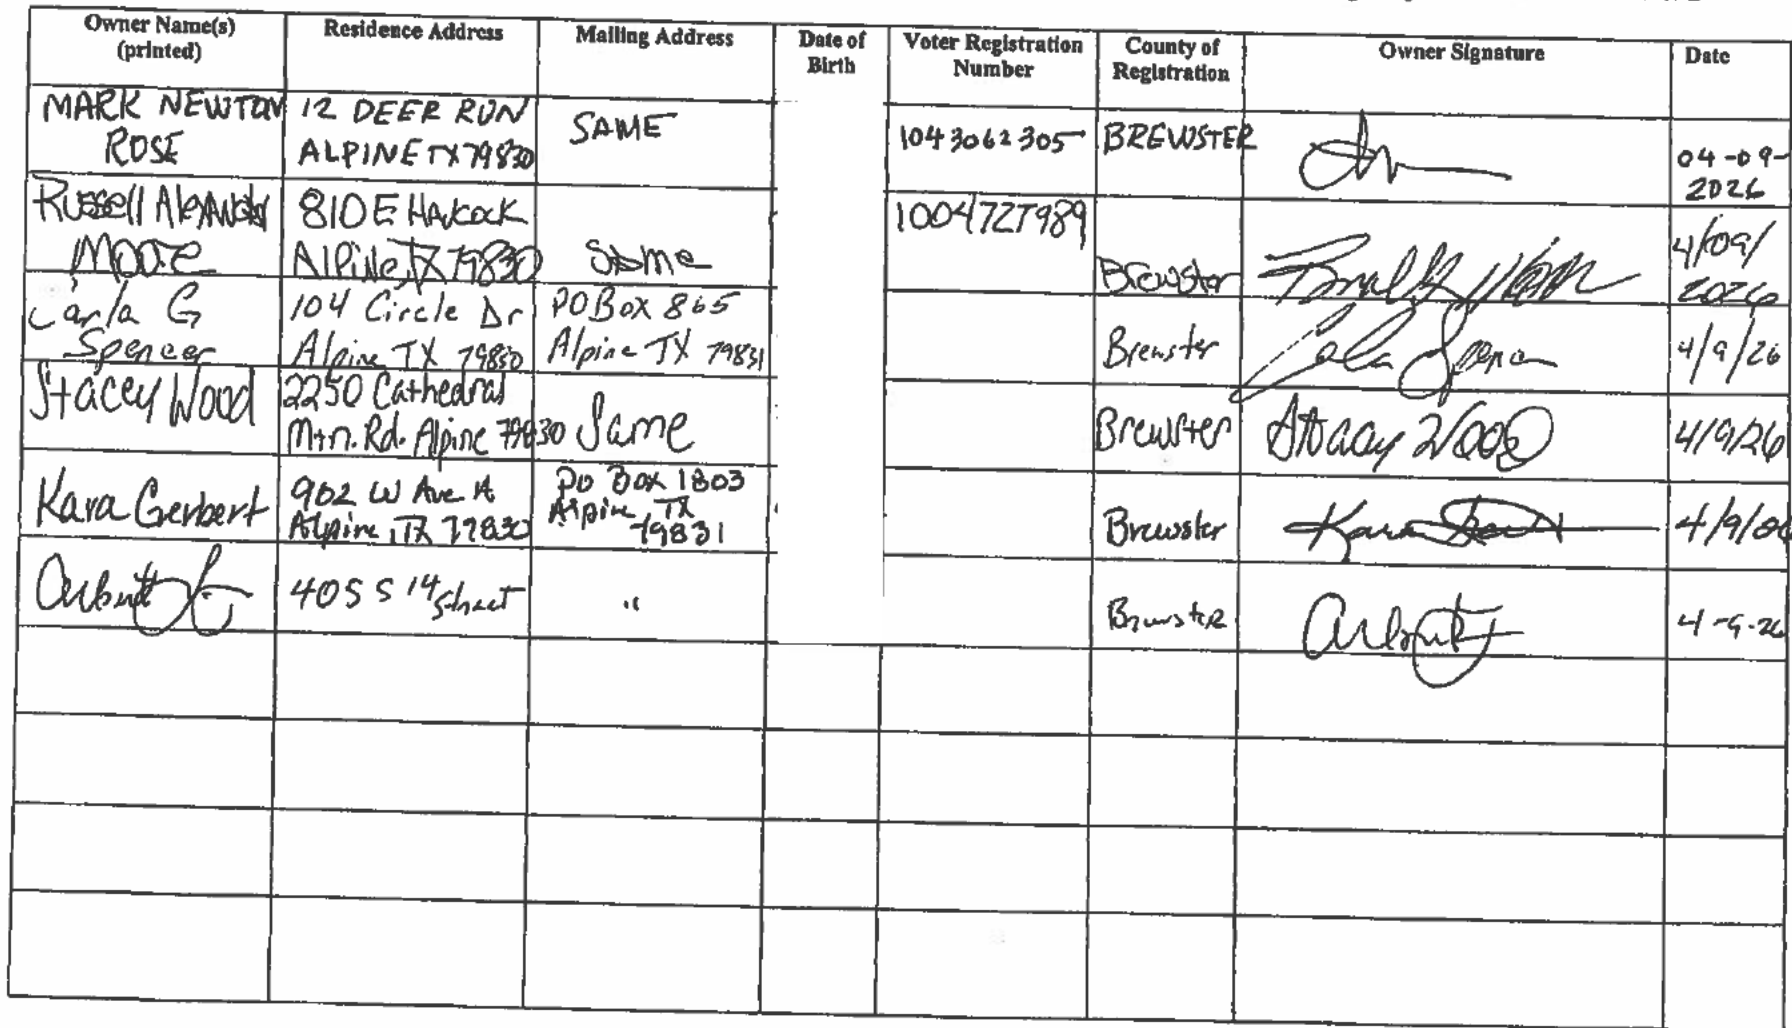 Owner Name(s) (printed) Residence Address Mailing Address Date of Birth Voter Registration Number County of Registration Owner Signature Date
MARK NEWTON ROSE 12 DEER RUN ALPINE TX 79830 SAME 1043062305 BREWSTER 04-09-2026
Russell Alexander Moore 810 E Hancock Alpine, TX 79830 Same Brewster 4/09/2026
Carla G Spencer 104 Circle Dr Alpine TX 79830 PO Box 865 Alpine TX 79831 Brewster Carla Spencer 4/9/26
Stacey Wood 2250 Cathedral Mtn. Rd. Alpine 79830 Same Brewster Stacey Wood 4/9/26
Kara Gerbert 902 W Ave A Alpine, TX 79830 PO Box 1803 Alpine TX 79831 Brewster Kara 4/9/26
405 S 14 Street " Brewster 4-9-26